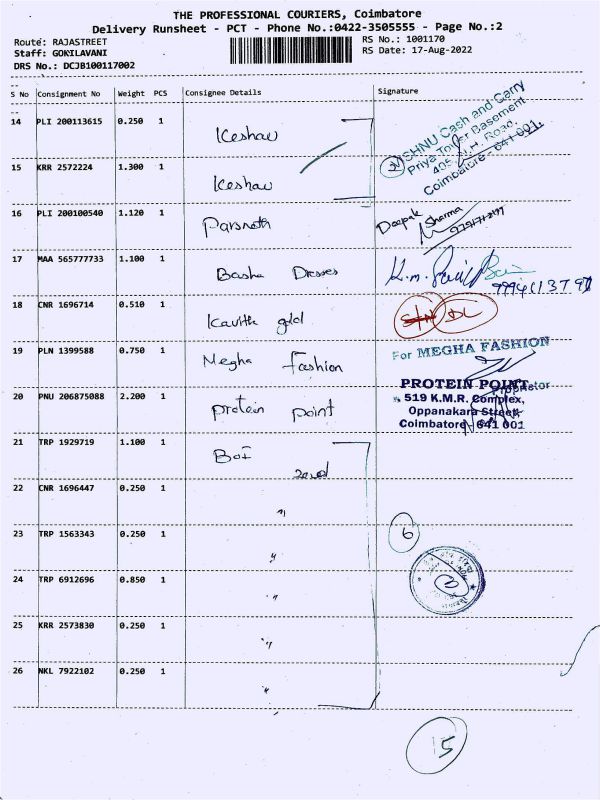 THE PROFESSIONAL COURIERS, Coimbatore
Delivery Runsheet - PCT - Phone No.:0422-3505555 - Page No.:2
Route: RAJASTREET RS No.: 1001170
Staff: GOKILAVANI RS Date: 17-Aug-2022
DRS No.: DCJB100117002
S No Consignment No Weight PCS Consignee Details Signature
14 PLI 200113615 0.250 1 Keshav
VISHNU Cash and Carry
Priya Tower Basement
Coimbatore - 641 001.
15 KRR 2572224 1.300 1 Keshav
16 PLI 200100540 1.120 1 Parsnath Deepak Sharma
17 MAA 565777733 1.100 1 Basha Dresses K.m.
18 CNR 1696714 0.510 1 Kavitha gold DL
19 PLN 1399588 0.750 1 Megha Fashion For MEGHA FASHION
Proprietor
20 PNU 206875088 2.200 1 Protein point PROTEIN POINT
519 K.M.R. Complex,
Oppanakara Street
Coimbatore - 641 001
21 TRP 1929719 1.100 1 BOI
22 CNR 1696447 0.250 1 "
23 TRP 1563343 0.250 1 " 6
24 TRP 6912696 0.850 1 "
25 KRR 2573830 0.250 1 "
26 NKL 7922102 0.250 1 "
15